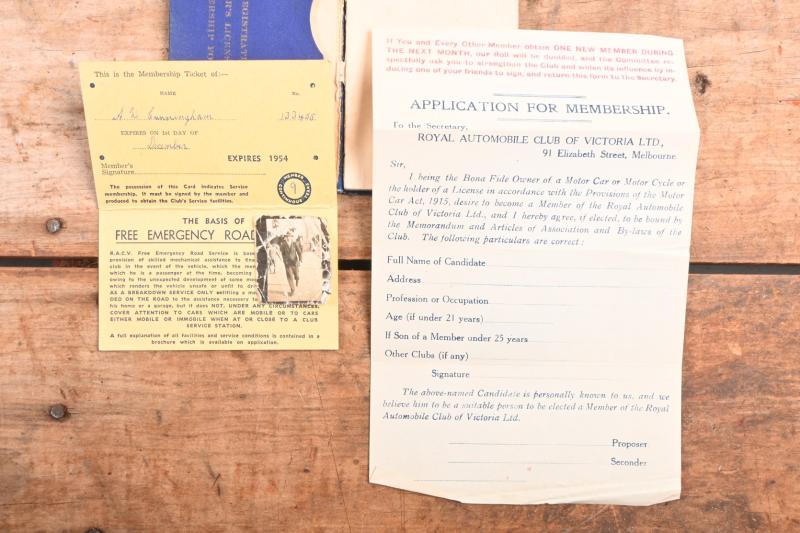 REGISTRATI
R'S LICENS
BERSHIP TO
This is the Membership Ticket of:—
NAME
No.
Cunningham
EXPIRES ON 1st DAY OF
December
EXPIRES 1954
Member's
Signature
The possession of this Card indicates Service
membership. It must be signed by the member and
produced to obtain the Club's Service facilities.
MEMBER
9
CONTINUOUS YEARS
THE BASIS OF
FREE EMERGENCY ROAD
R.A.C.V. Free Emergency Road Service is base
provision of skilled mechanical assistance to fina
club in the event of the vehicle, which the mem
which he is a passenger at the time, becoming
owing to the unexpected development of some m
which renders the vehicle unsafe or unfit to dri
AS A BREAKDOWN SERVICE ONLY entitling a m
DED ON THE ROAD to the assistance necessary to
his home or a garage, but it DOES NOT, UNDER ANY CIRCUMSTANCES,
COVER ATTENTION TO CARS WHICH ARE MOBILE OR TO CARS
EITHER MOBILE OR IMMOBILE WHEN AT OR CLOSE TO A CLUB
SERVICE STATION.
A full explanation of all facilities and service conditions is contained in a
brochure which is available on application.
If You and Every Other Member obtain ONE NEW MEMBER DURING
THE NEXT MONTH, our Roll will be doubled, and the Committee re-
spectfully ask you to strengthen the Club and widen its influence by in-
ducing one of your friends to sign, and return this form to the Secretary.
APPLICATION FOR MEMBERSHIP.
To the Secretary,
ROYAL AUTOMOBILE CLUB OF VICTORIA LTD.,
91 Elizabeth Street, Melbourne
Sir,
I being the Bona Fide Owner of a Motor Car or Motor Cycle or
the holder of a License in accordance with the Provisions of the Motor
Car Act, 1915, desire to become a Member of the Royal Automobile
Club of Victoria Ltd., and I hereby agree, if elected, to be bound by
the Memorandum and Articles of Association and By-laws of the
Club. The following particulars are correct :
Full Name of Candidate
Address
Profession or Occupation
Age (if under 21 years)
If Son of a Member under 25 years
Other Clubs (if any)
Signature
The above-named Candidate is personally known to us, and we
believe him to be a suitable person to be elected a Member of the Royal
Automobile Club of Victoria Ltd.
Proposer
Seconder